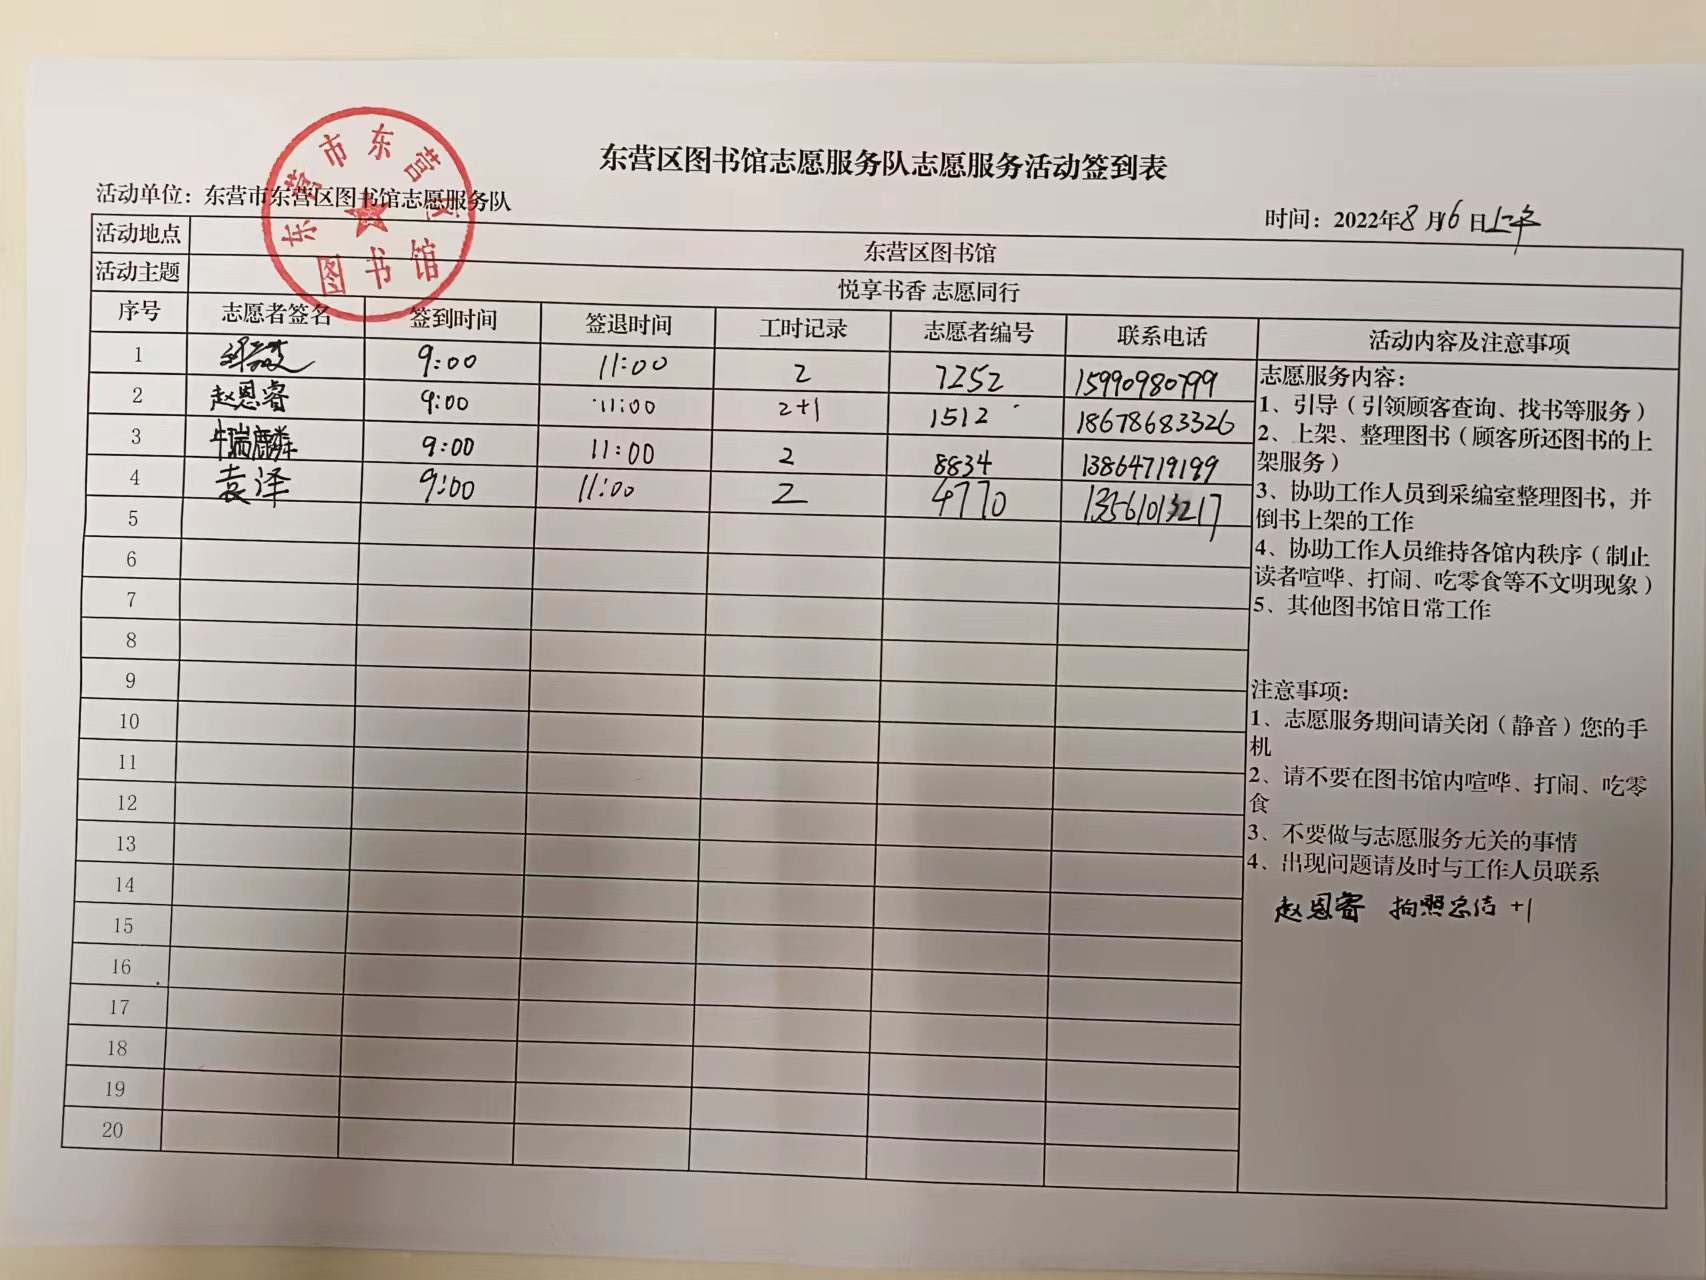 东营区图书馆志愿服务队志愿服务活动签到表
活动单位：东营市东营区图书馆志愿服务队
时间：2022年8月6日上午
东营市东营区
图书馆
活动地点 东营区图书馆
活动主题 悦享书香 志愿同行
序号 志愿者签名 签到时间 签退时间 工时记录 志愿者编号 联系电话 活动内容及注意事项
1 9:00 11:00 2 7252 15990980799
2 赵恩睿 9:00 11:00 2+1 1512 18678683326
3 牛瑞麟 9:00 11:00 2 8834 13864719199
4 袁泽 9:00 11:00 2 4770 13561013217
5
6
7
8
9
10
11
12
13
14
15
16
17
18
19
20
志愿服务内容：
1、引导（引领顾客查询、找书等服务）
2、上架、整理图书（顾客所还图书的上
架服务）
3、协助工作人员到采编室整理图书，并
倒书上架的工作
4、协助工作人员维持各馆内秩序（制止
读者喧哗、打闹、吃零食等不文明现象）
5、其他图书馆日常工作
注意事项：
1、志愿服务期间请关闭（静音）您的手
机
2、请不要在图书馆内喧哗、打闹、吃零
食
3、不要做与志愿服务无关的事情
4、出现问题请及时与工作人员联系
赵恩睿 拍照总结 +1